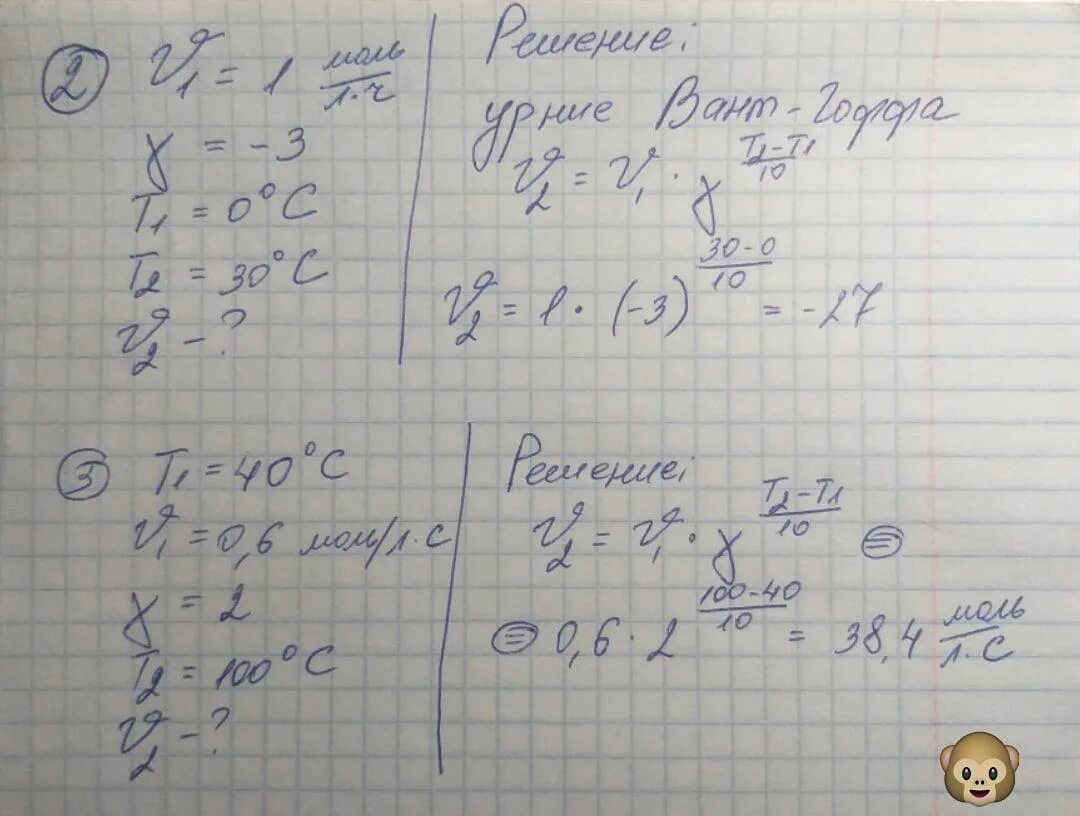 ② υ₁ = 1 моль/л·ч
γ = -3
T₁ = 0°C
T₂ = 30°C
υ₂ - ?
Решение:
урние Вант-Гоффа
υ₂ = υ₁ · γ^((T₂-T₁)/10)
υ₂ = 1 · (-3)^((30-0)/10) = -27
③ T₁ = 40°C
υ₁ = 0,6 моль/л.с
γ = 2
T₂ = 100°C
υ₂ - ?
Решение:
υ₂ = υ₁ · γ^((T₂-T₁)/10) ⊜
⊜ 0,6 · 2^((100-40)/10) = 38,4 моль/л.с